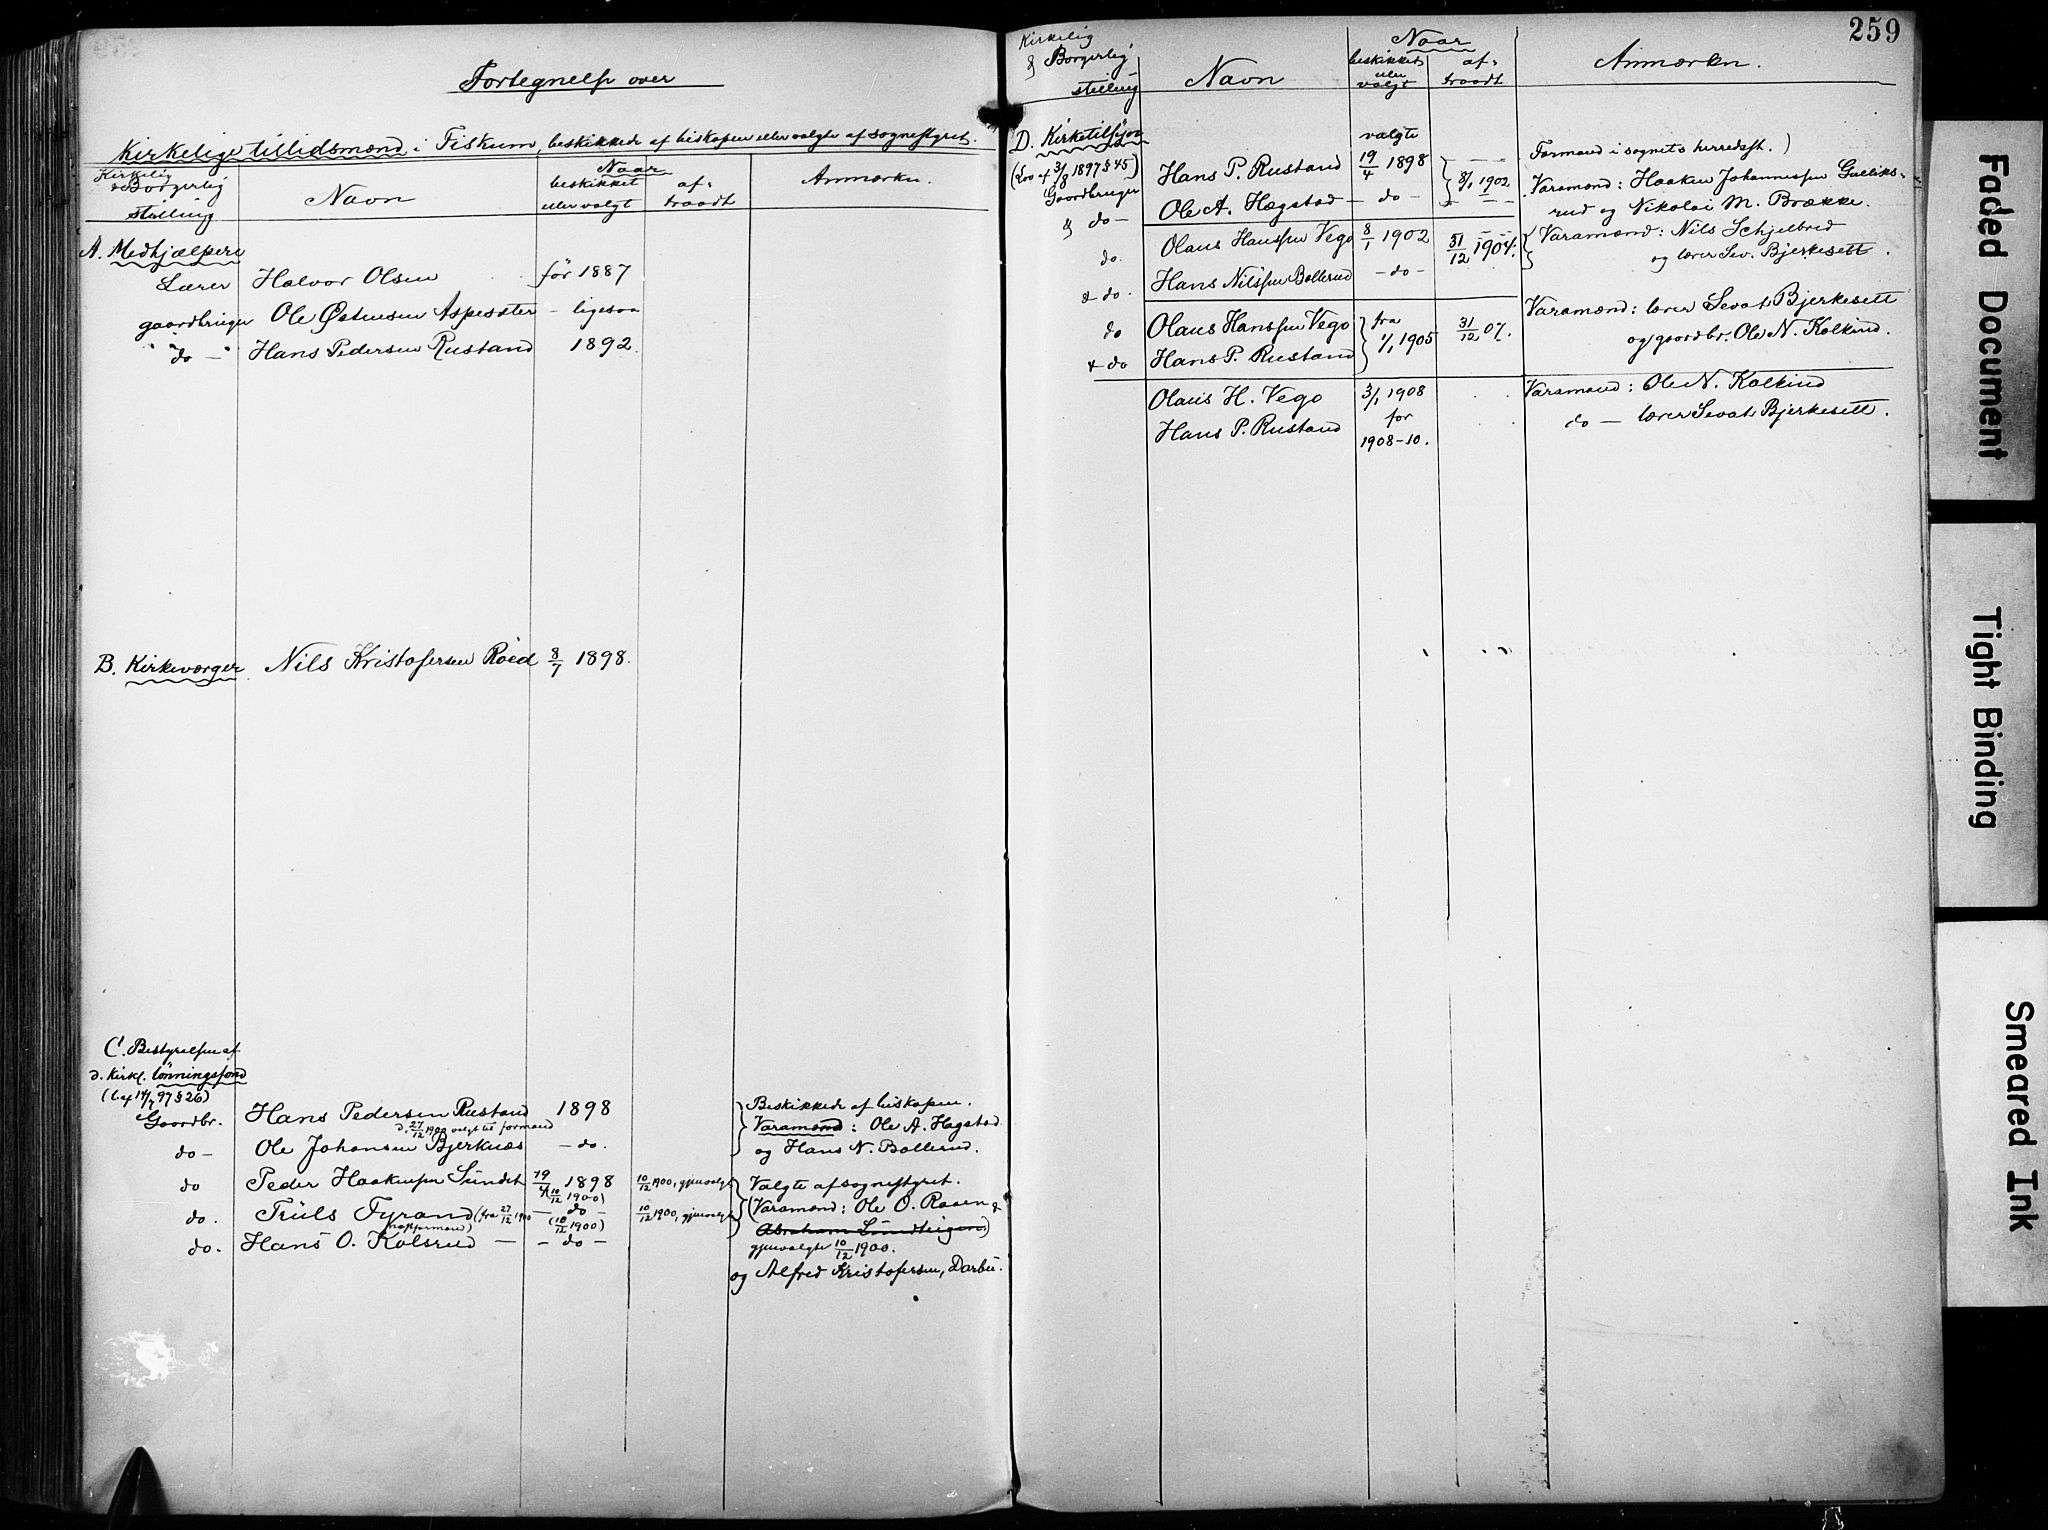 Fortegnelse over
Kirkelige tillidsmænd i Fiskum, beskikkede af biskopen eller valgte af sognestyret.
Kirkelig & Borgerlig stilling
Navn
Naar
beskikket eller valgt
af-traadt
Anmærkn.
A. Medhjælpere
Lærer Halvor Olsen før 1887
gaardbruger Ole Østensen Aspesæter - ligesaa
" do - " Hans Pedersen Rustand 1892.
B. Kirkeværger Nils Kristofersen Røed 8/7 1898.
C. Bestyrelsen af
d. kirkl. lønningsfond
(l. af 14/7 97 § 26)
Gaardbr. Hans Pedersen Rustand 1898 Beskikkede af biskopen.
d. 27/12 1900 valgt til formand Varamænd: Ole A. Hægstad
do - Ole Johansen Bjerknæs - do. og Hans N. Bollerud.
do Peder Haakensen Sundet 19/4 1898 10/12 1900, gjenvalgt Valgte af sognestyret.
(10/12 1900)
do. Truls Fyrand (fra 27/12 1900 - do - 10/12 1900, gjenvalgt (Varamænd: Ole O. Raaen &
(10/12 1900) Abraham Sundteigen)
do. Hans O. Kolsrud - - do - gjenvalgte 10/12 1900.
og Alfred Kristofersen, Darbu.
259
Kirkelig
& Borgerlig
stilling
Navn
Naar
beskikket
eller
valgt
af-
traadt
Anmærkn.
D. Kirketilsyn valgte
(Lov af 3/8 1897 § 45) Hans P. Rustand 19/4 1898 Formænd i sognets herredsst.)
Gaardbruger 8/1 1902 Varamænd: Haaken Johannessen Gulliks-
& do - Ole A. Hægstad - do - rud og Nikolai M. Brække.
do. Olaus Hanssen Vego 8/1 1902 31/12 1904. Varamænd: Nils Schjelbred
& do. Hans Nilssen Bollerud - do - og lærer Sev. Bjerkesett.
do Olaus Hanssen Vego fra 31/12 07. Varamænd: lærer Sevat Bjerkesett
& do Hans P. Rustand 1/1 1905 og gaardbr. Ole N. Kolkind.
Olaus H. Vego 3/1 1908 Varamænd: Ole N. Kolkind
Hans P. Rustand for do - lærer Sevat Bjerkesett.
1908-10.
Faded Document
Tight Binding
Smeared Ink